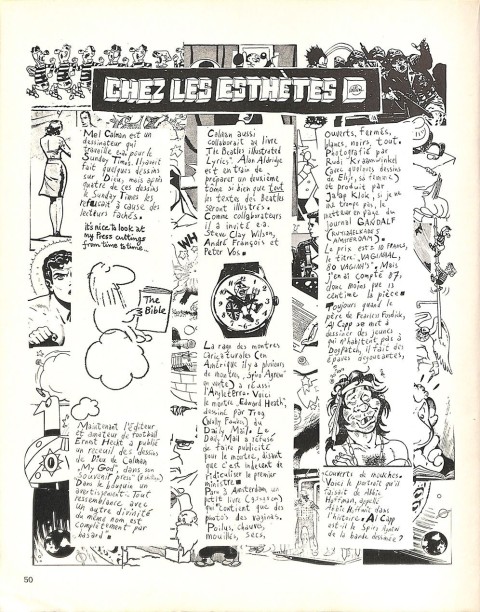 CHEZ LES ESTHETES
Mel Calman est un
dessinateur qui
travaille e.a. pour le
Sunday Times. Il avait
fait quelques dessins
sur Dieu, mais après
quatre de ces dessins
le Sunday Times les
refusait à cause des
lecteurs fachés.
it's nice to look at
my press cuttings
from time to time...
The
Bible
Maintenant l'éditeur
et amateur de football
Ernest Hecht a publié
un receuil des dessins
de Dieu de Calman
"My God", dans sa
"Souvenir press"
Dans le bouquin un
avertissement: Tout
ressemblance avec
un autre divinité
du même nom est
complètement par
hasard.
Calman aussi
collaborait au livre
"The Beatles illustrated
Lyrics". Alan Aldridge
est en train de
préparer un deuxième
tome si bien que tout
les textes des Beatles
seront illustrés.
Comme collaborateurs
il a invité e.a.
Steve Clay Wilson,
André François et
Peter Vos.
La rage des montres
caricaturales (en
Amérique il y a plusieurs
de montres "Spiro Agnew"
en vente) a réussi
l'Angleterre. Voici
le montre "Edward Heath",
dessiné par Trog
(Wally Fawkes) du
Daily Mail. Le
Daily Mail a refusé
de faire publicité
pour le montre, disant
que c'est indécent de
ridiculiser le premier
ministre.
Paru à Amsterdam un
petit livre
qui contient que des
photos des vagines.
Poilus, chauves,
mouillés, secs,
Ouverts, fermés,
blancs, noirs, tout.
Photografié par
Rudi Kraamwinkel
(avec quelques dessins
de Elsje, sa femme)
et produit par
Jaap Klok, si je ne
me trompe pas, le
metteur en page du
journal GANDALF
AMSTERDAM).
Le prix est: 10 francs,
le titre: "VAGINAAL,
80 VAGINA'S". Mais
j'en ai compté 87,
donc moins que 12
centime la pièce.
Toujours quand le
père de Fearless Fosdick,
Al Capp se met à
dessiner des jeunes
qui n'habitent pas à
Dogpatch, il fait des
épaves dégoutantes,
couverte de mouches.
Voici le portrait qu'il
faisait de Abbie
Hoffman, appellé
dans
l'histoire. Al Capp
est-il le Spiro Agnew
de la bande dessinée?
50